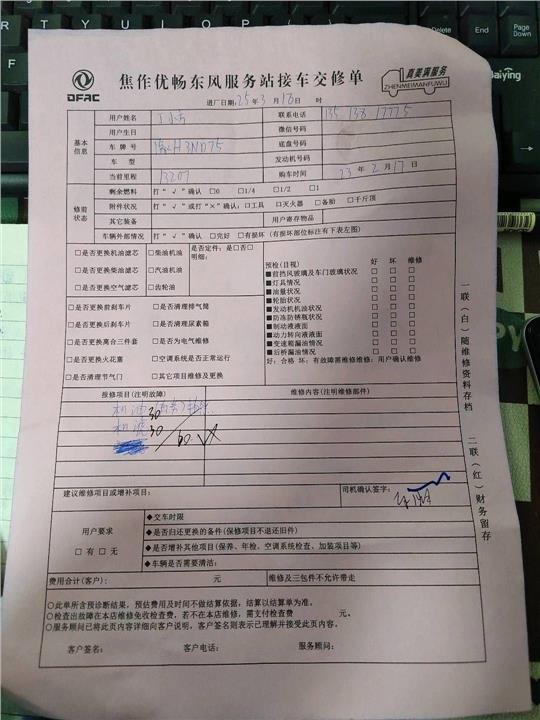 DFAC
焦作优畅东风服务站接车交修单
真美满服务
ZHENMEIMANFUWU
进厂日期:25年3月18日 时
基本信息
用户姓名 联系电话 135 138 17775
用户生日 微信号码
车牌号 豫H3ND75 底盘号码
车型 发动机号码
当前里程 13207 购车时间 23年2月17日
修前状态
剩余燃料 打“√”确认 □0 □1/4 □1/2 □1
附件状况 打“√”或打“×”确认:□工具 □灭火器 □备胎 □千斤顶
其它装备 用户寄存物品
车辆外部情况 打“√”确认 □完好 □有损坏(有损坏部位标注有下表左图)
□是否更换机油滤芯 □柴油机油
□是否更换柴油滤芯 □汽油机油
□是否更换空气滤芯 □齿轮油
是否定件:是□否□
明细:
□是否更换前刹车片 □是否清理排气筒
□是否更换后刹车片 □是否清理尿素箱
□是否更换离合三件套 □是否为电气维修
□是否更换火花塞 □空调系统是否正常运行
□是否清理节气门 □其它项目维修及更换
预检(目视) 好 坏 维修
■前挡风玻璃及车门玻璃状况 □ □ □
■灯具情况 □ □ □
■油量状况 □ □ □
■轮胎状况 □ □ □
■发动机机油状况 □ □ □
■防冻防锈瓶状况 □ □ □
■制动液液面 □ □ □
■动力转向液液面 □ □ □
■变速箱漏油情况 □ □ □
■后桥漏油情况 □ □ □
好:合格 坏:有故障需维修维修:用户确认维修
报修项目(注明故障) 维修内容(注明维修部件)
机油 30
机滤 30
60
建议维修项目或增补项目: 司机确认签字:
用户要求
□有 □无
◆交车时限
◆是否归还更换的备件(保修项目不退还旧件)
◆是否增补其他项目(保养、年检、空调系统检查、加装项目等)
◆车辆是否需要清洁:
费用合计(客户): 元 维修及三包件不允许带走
○此单所含预诊断结果,预估费用及时间不做结算依据,结算以结算单为准。
○检查出故障在本店维修免收检查费,若不在本店维修,需支付检查费 元。
○服务顾问已将此页内容详细向客户说明,客户签名则表示已理解并接受此页内容。
客户签名: 客户电话: 服务顾问:
一联(白)随维修资料存档
二联(红)财务留存
R T Y U I O P
End
Page Down
Baiying